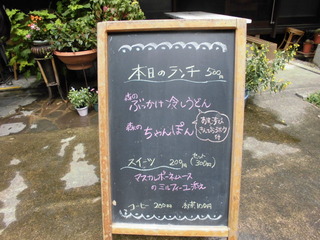 本日のランチ 500円
森の ぶっかけ冷しうどん
森の ちゃんぽん
スイーツ 200円 (セット 300円)
マスカルポーネムース
のミルフィーユ添え
コーヒー 200円 紅茶